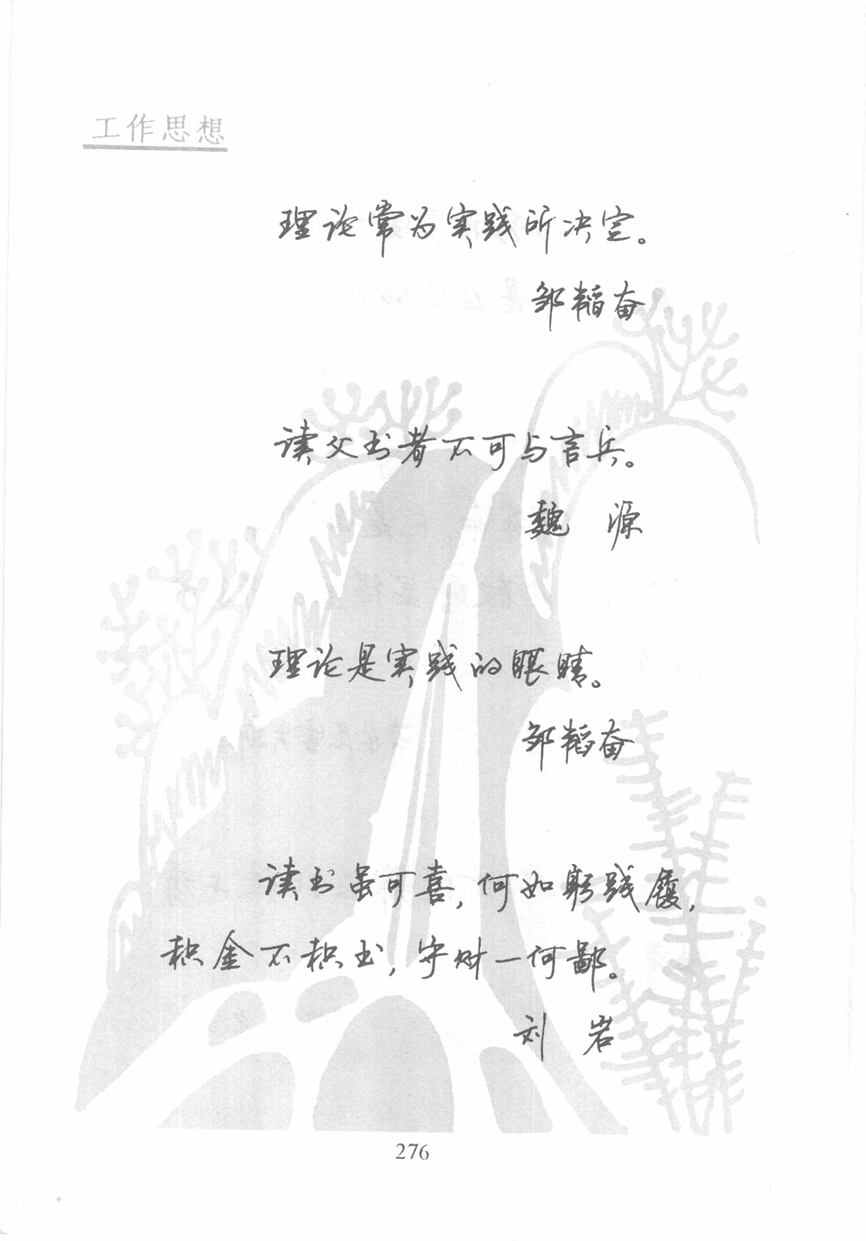 工作思想
理论常为实践所决定。
邹韬奋
读父书者不可与言兵。
魏 源
理论是实践的眼睛。
邹韬奋
读书虽可喜,何如躬践履,
积金不积书,守财一何鄙。
刘 岩
276